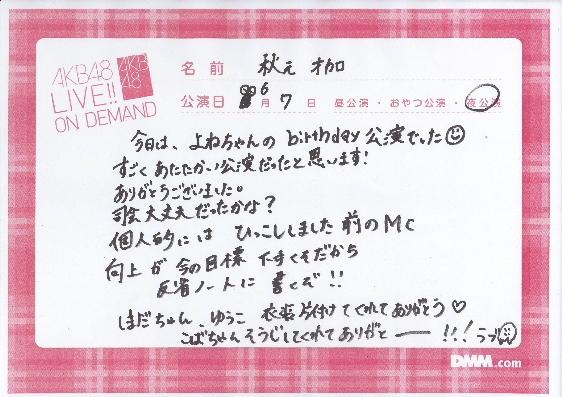 AKB48
LIVE!!
ON DEMAND
AKB
48
名前 秋元 才加
公演日 6月 7日 昼公演・おやつ公演・夜公演
今日は、よねちゃんの birthday 公演でした
すごくあたたかい公演だったと思います!
ありがとうございました。
司会大丈夫だったかな?
個人的には ひっこししました 前のMC
向上が今の目標 ですくそだから
反省ノートに 書くぞ!!
しまだちゃん、ゆうこ 衣装片付けてくれてありがとう♡
こばちゃんそうじしてくれてありがとー!!!ラブ
DMM.com